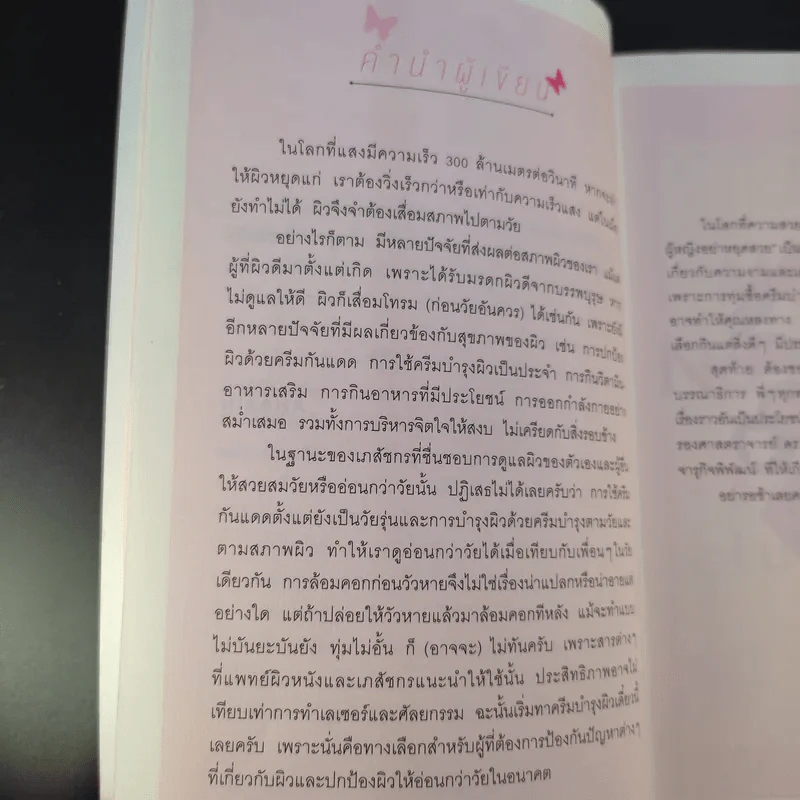 คำนำผู้เขียน
ในโลกที่แสงมีความเร็ว 300 ล้านเมตรต่อวินาที หากจะ
ให้ผิวหยุดแก่ เราต้องวิ่งเร็วกว่าหรือเท่ากับความเร็วแสง แต่ใน
ยังทำไม่ได้ ผิวจึงจำต้องเสื่อมสภาพไปตามวัย
อย่างไรก็ตาม มีหลายปัจจัยที่ส่งผลต่อสภาพผิวของเรา แม้แต่
ผู้ที่ผิวดีมาตั้งแต่เกิด เพราะได้รับมรดกผิวดีจากบรรพบุรุษ หาก
ไม่ดูแลให้ดี ผิวก็เสื่อมโทรม (ก่อนวัยอันควร) ได้เช่นกัน เพราะยังมี
อีกหลายปัจจัยที่มีผลเกี่ยวข้องกับสุขภาพของผิว เช่น การปกป้อง
ผิวด้วยครีมกันแดด การใช้ครีมบำรุงผิวเป็นประจำ การกินวิตามิน
อาหารเสริม การกินอาหารที่มีประโยชน์ การออกกำลังกายอย่าง
สม่ำเสมอ รวมทั้งการบริหารจิตใจให้สงบ ไม่เครียดกับสิ่งรอบข้าง
ในฐานะของเภสัชกรที่ชื่นชอบการดูแลผิวของตัวเองและผู้อื่น
ให้สวยสมวัยหรืออ่อนกว่าวัยนั้น ปฏิเสธไม่ได้เลยครับว่า การใช้ครีม
กันแดดตั้งแต่ยังเป็นวัยรุ่นและการบำรุงผิวด้วยครีมบำรุงตามวัยและ
ตามสภาพผิว ทำให้เราดูอ่อนกว่าวัยได้เมื่อเทียบกับเพื่อนๆ ในวัย
เดียวกัน การล้อมคอกก่อนวัวหายจึงไม่ใช่เรื่องน่าแปลกหรือน่าอายแต่
อย่างใด แต่ถ้าปล่อยให้วัวหายแล้วมาล้อมคอกทีหลัง แม้จะทำแบบ
ไม่บันยะบันยัง ทุ่มไม่อั้น ก็ (อาจจะ) ไม่ทันครับ เพราะสารต่างๆ
ที่แพทย์ผิวหนังและเภสัชกรแนะนำให้ใช้นั้น ประสิทธิภาพอาจไม่
เทียบเท่าการทำเลเซอร์และศัลยกรรม ฉะนั้นเริ่มทาครีมบำรุงผิวเดี๋ยวนี้
เลยครับ เพราะนั่นคือทางเลือกสำหรับผู้ที่ต้องการป้องกันปัญหาต่างๆ
ที่เกี่ยวกับผิวและปกป้องผิวให้อ่อนกว่าวัยในอนาคต
ในโลกที่ความสวย
ผู้หญิงอย่าหยุดสวย" เป็น
เกี่ยวกับความงามและ
เพราะการทุ่มซื้อครีมบำ
อาจทำให้คุณหลงทาง
เลือกกินแต่สิ่งดีๆ มีประ
สุดท้าย ต้องขอ
บรรณาธิการ พี่ๆ ทุก
เรื่องราวอันเป็นประโยชน์
รองศาสตราจารย์ ดร
จารุกิจพิพัฒน์ ที่ให้
อย่ารอช้าเลยค